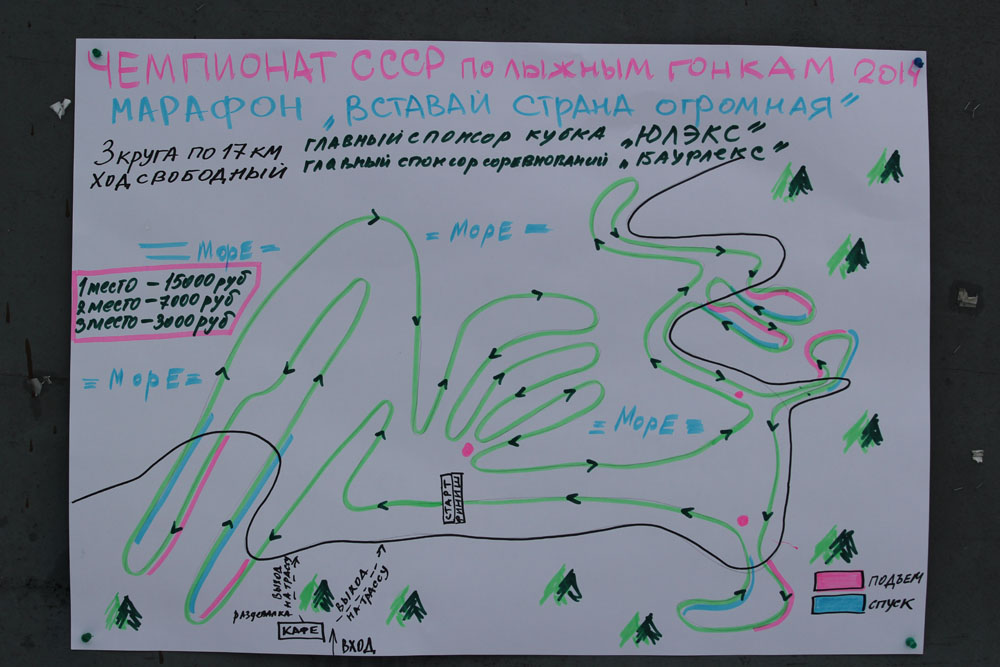 ЧЕМПИОНАТ СССР ПО ЛЫЖНЫМ ГОНКАМ 2014
МАРАФОН „ВСТАВАЙ СТРАНА ОГРОМНАЯ"
3 КРУГА ПО 17 КМ
ХОД СВОБОДНЫЙ
ГЛАВНЫЙ СПОНСОР КУБКА „ЮЛЭКС"
ГЛАВНЫЙ СПОНСОР СОРЕВНОВАНИЙ „БАУРЛЕКС"
= МОРЕ =
= МОРЕ =
1 МЕСТО – 15000 РУБ
2 МЕСТО – 7000 РУБ
3 МЕСТО – 3000 РУБ
= МОРЕ =
= МОРЕ =
СТАРТ
ФИНИШ
ВЫХОД
НА ТРАССУ
ВЫХОД
НА ТРАССУ
РАЗДЕВАЛКА
КАФЕ
ВХОД
ПОДЪЕМ
СПУСК